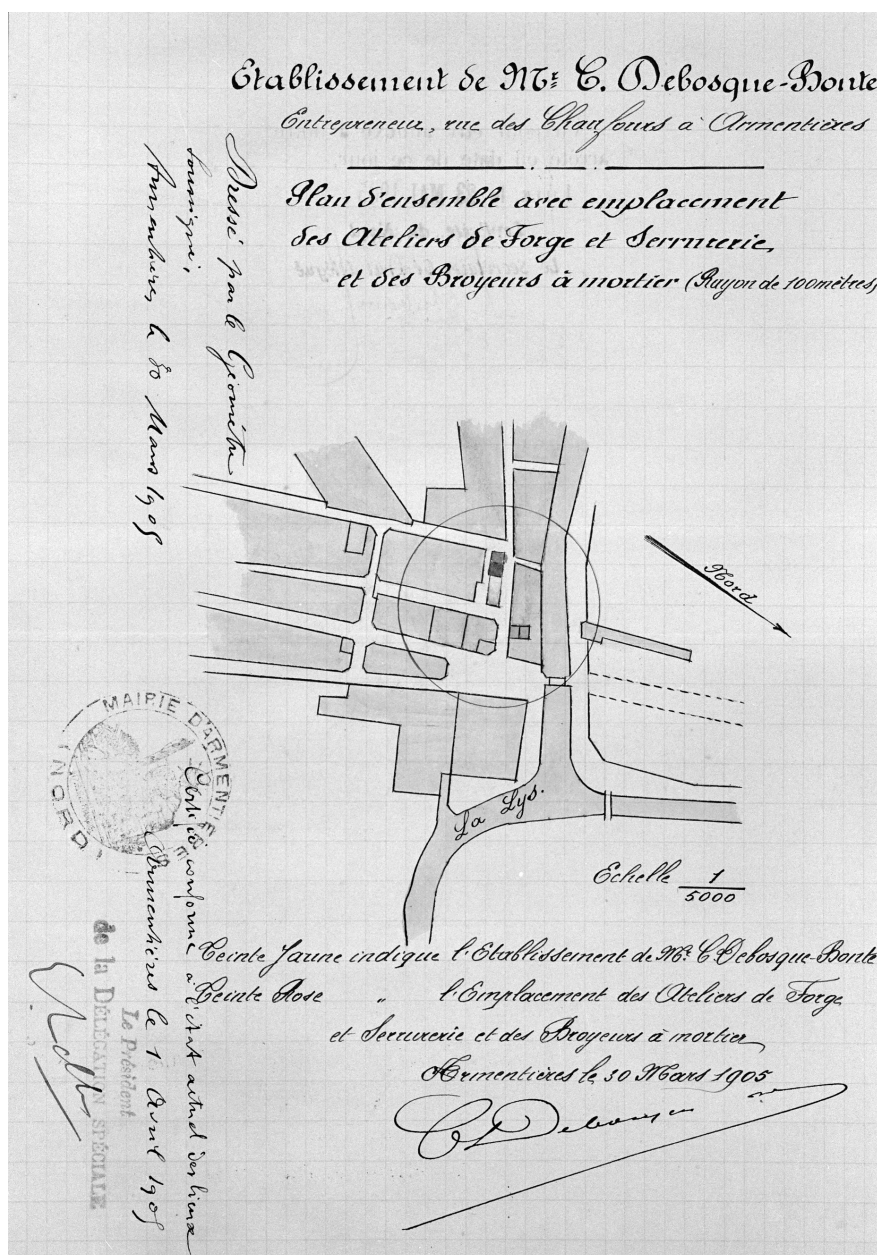 Etablissement de Mr C. Debosque-Bonte
Entrepreneur, rue des Chauffours à Armentières
Plan d'ensemble avec emplacement
des Ateliers de Forge et Serrurerie,
et des Broyeurs à mortier (Rayon de 100 mètres)
Dressé par le Géomètre
soussigné,
Armentières, le 30 Mars 1905
Nord
La Lys.
Echelle 1
5000
MAIRIE D'ARMENTIÈRES
(NORD)
Certifié conforme à l'état actuel des lieux
Armentières le 1 Avril 1905
Le Président
de la DÉLÉGATION SPÉCIALE
Teinte Jaune indique l'Etablissement de Mr C Debosque-Bonte
Teinte Rose " l'Emplacement des Ateliers de Forge
et Serrurerie et des Broyeurs à mortier
Armentières le 30 Mars 1905
C Debosque